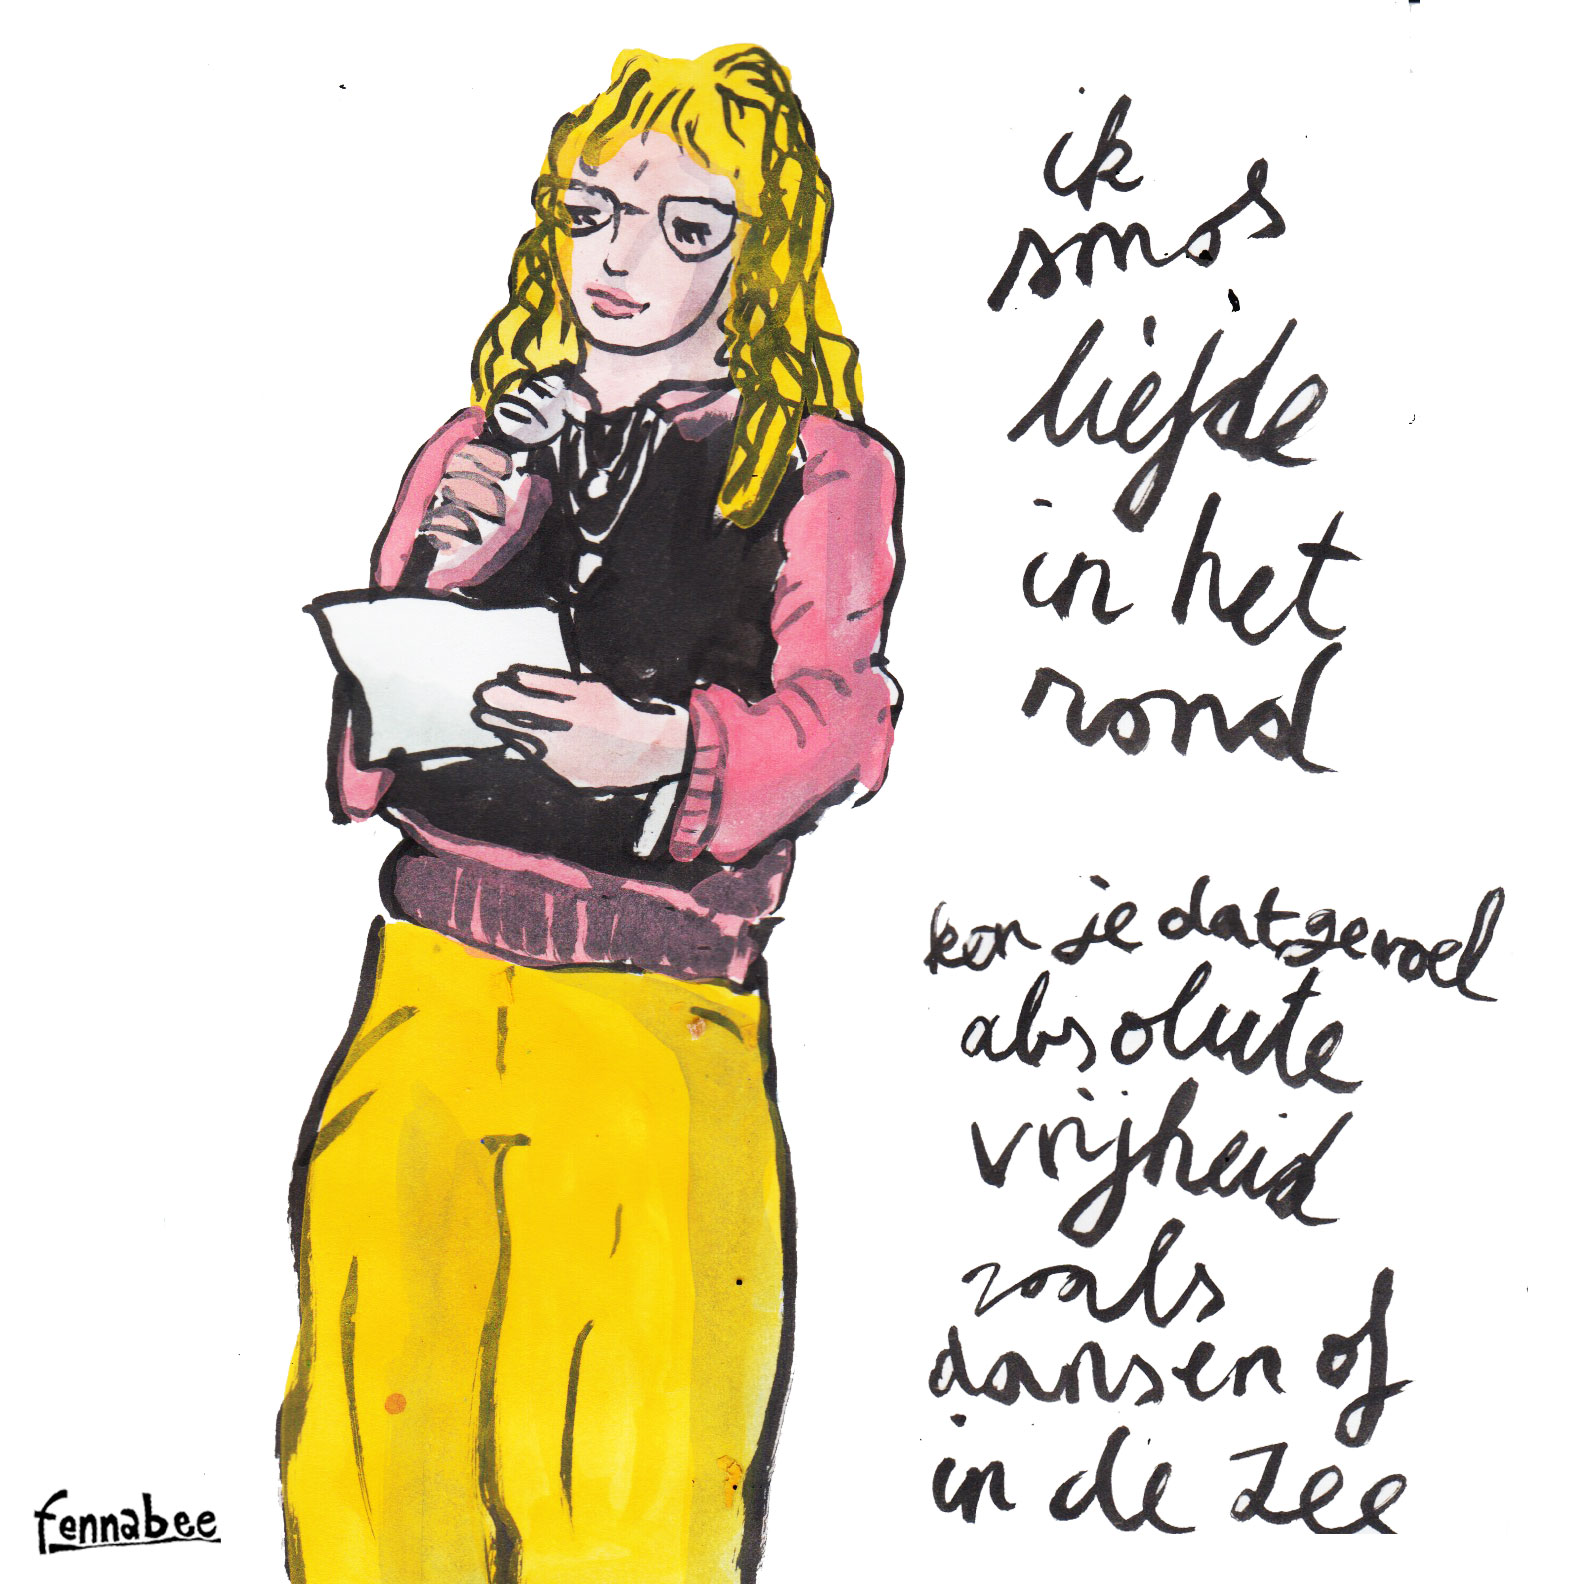 ik
smos
liefde
in het
rond
kon je dat gevoel
absolute
vrijheid
zoals
dansen of
in de zee
fennabee